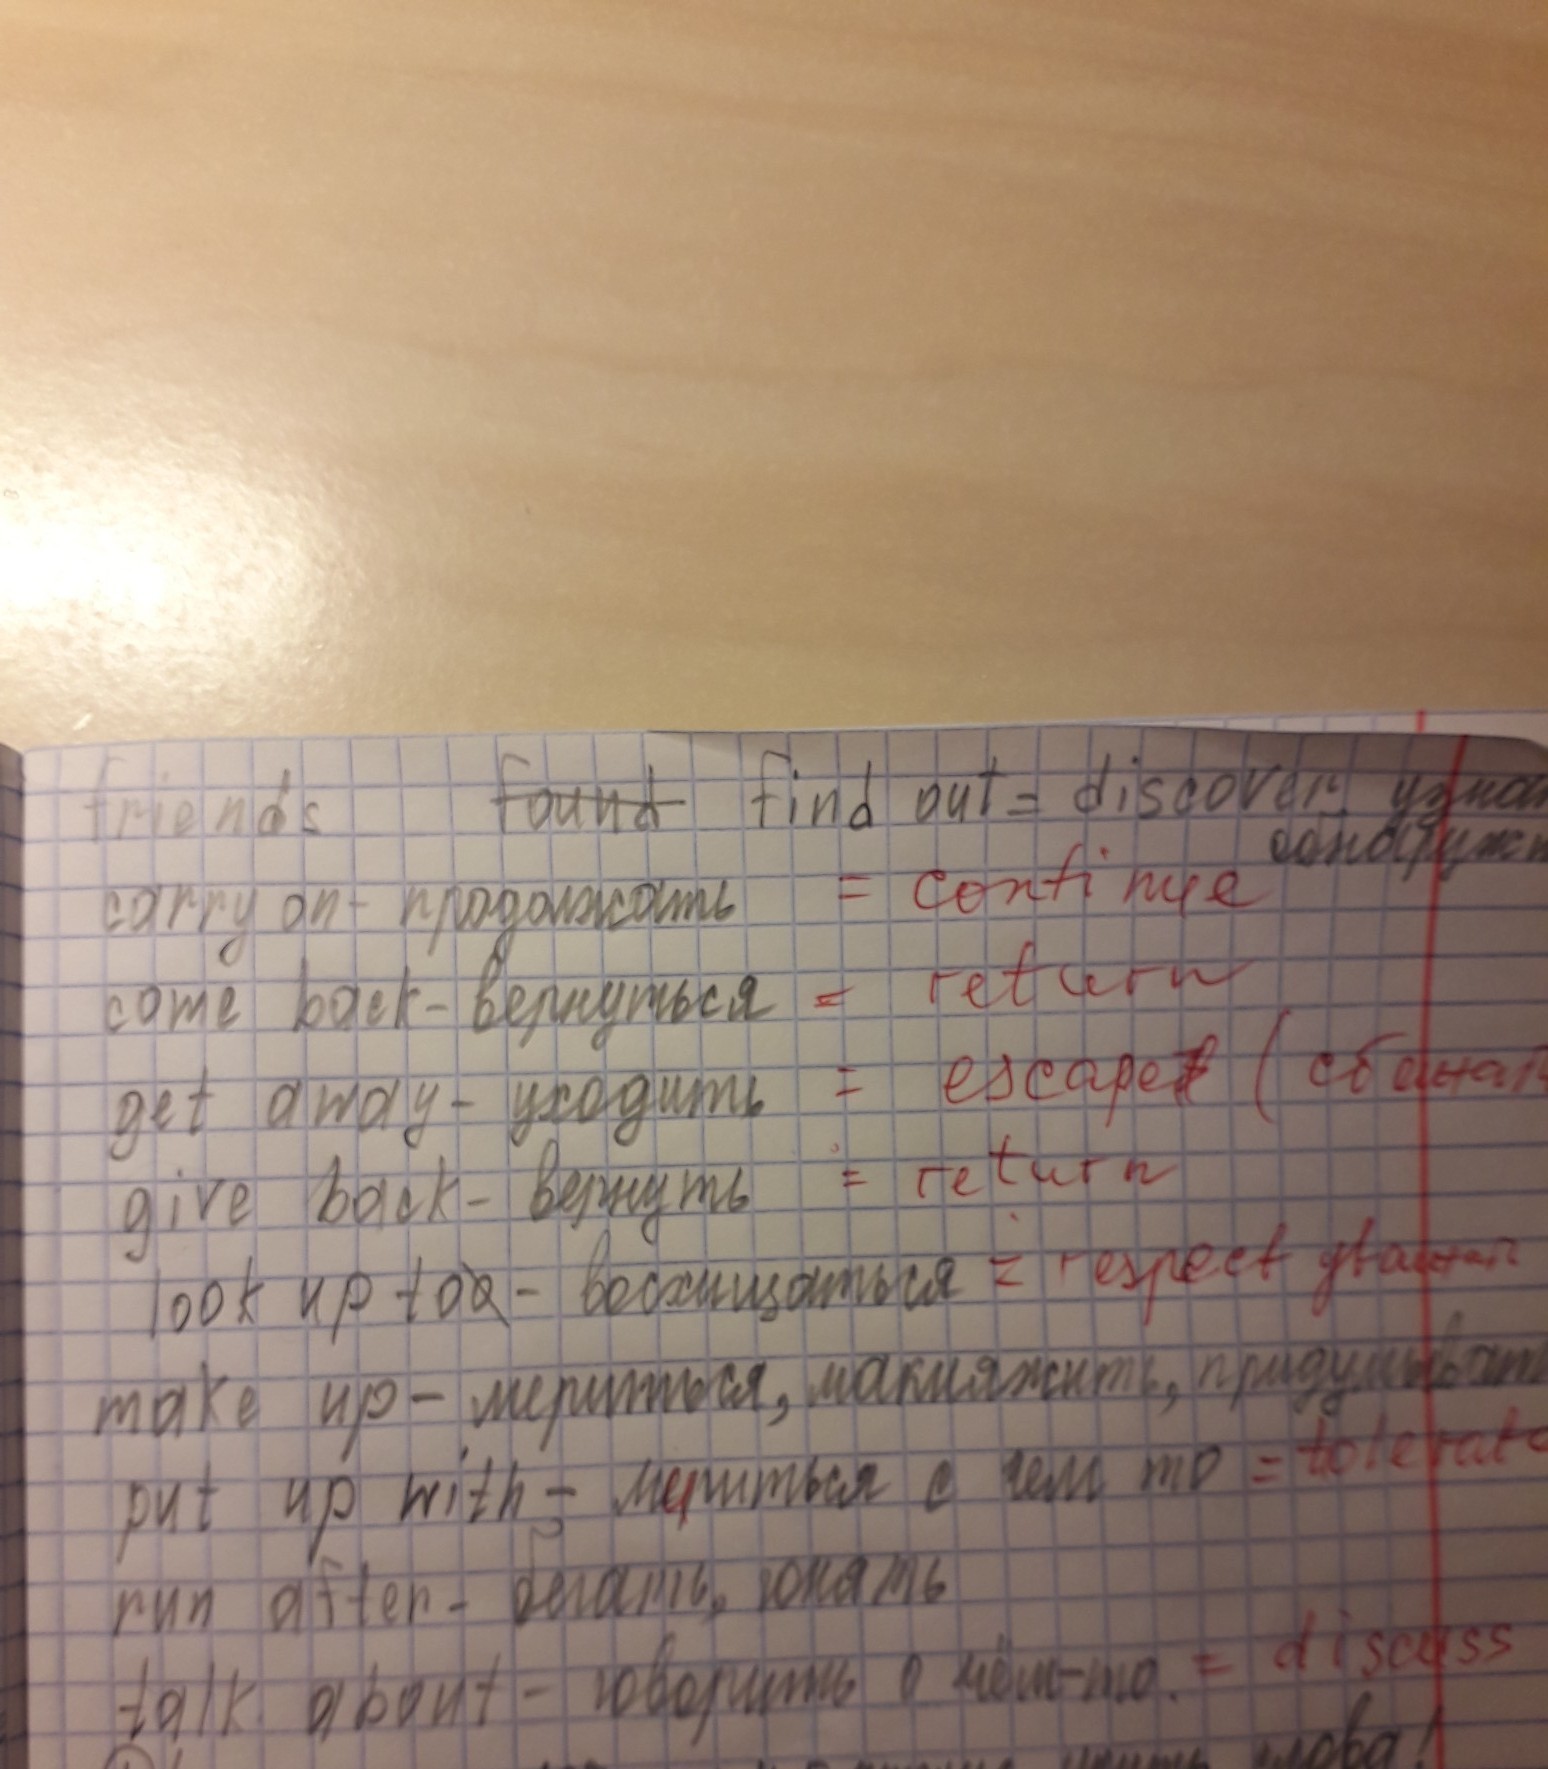 friends found find out = discover
carry on - продолжать = continue
come back - вернуться = return
get away - уходить = escape (
give back - вернуть = return
look up to - восхищаться = respect уважать
make up - мериться, макияжить, придумывать
put up with - мериться с чем то = tolerate
run after - бегать, гонять
talk about - говорить о чём-то. = discuss
слова!